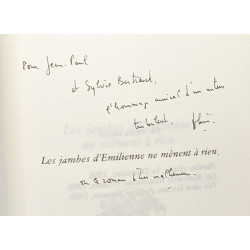 Pour Jean-Paul
et Sylvie Bertrand,
l'hommage amical d'un auteur
turbulent.
Les jambes d'Emilienne ne mènent à rien
ou le roman d'un